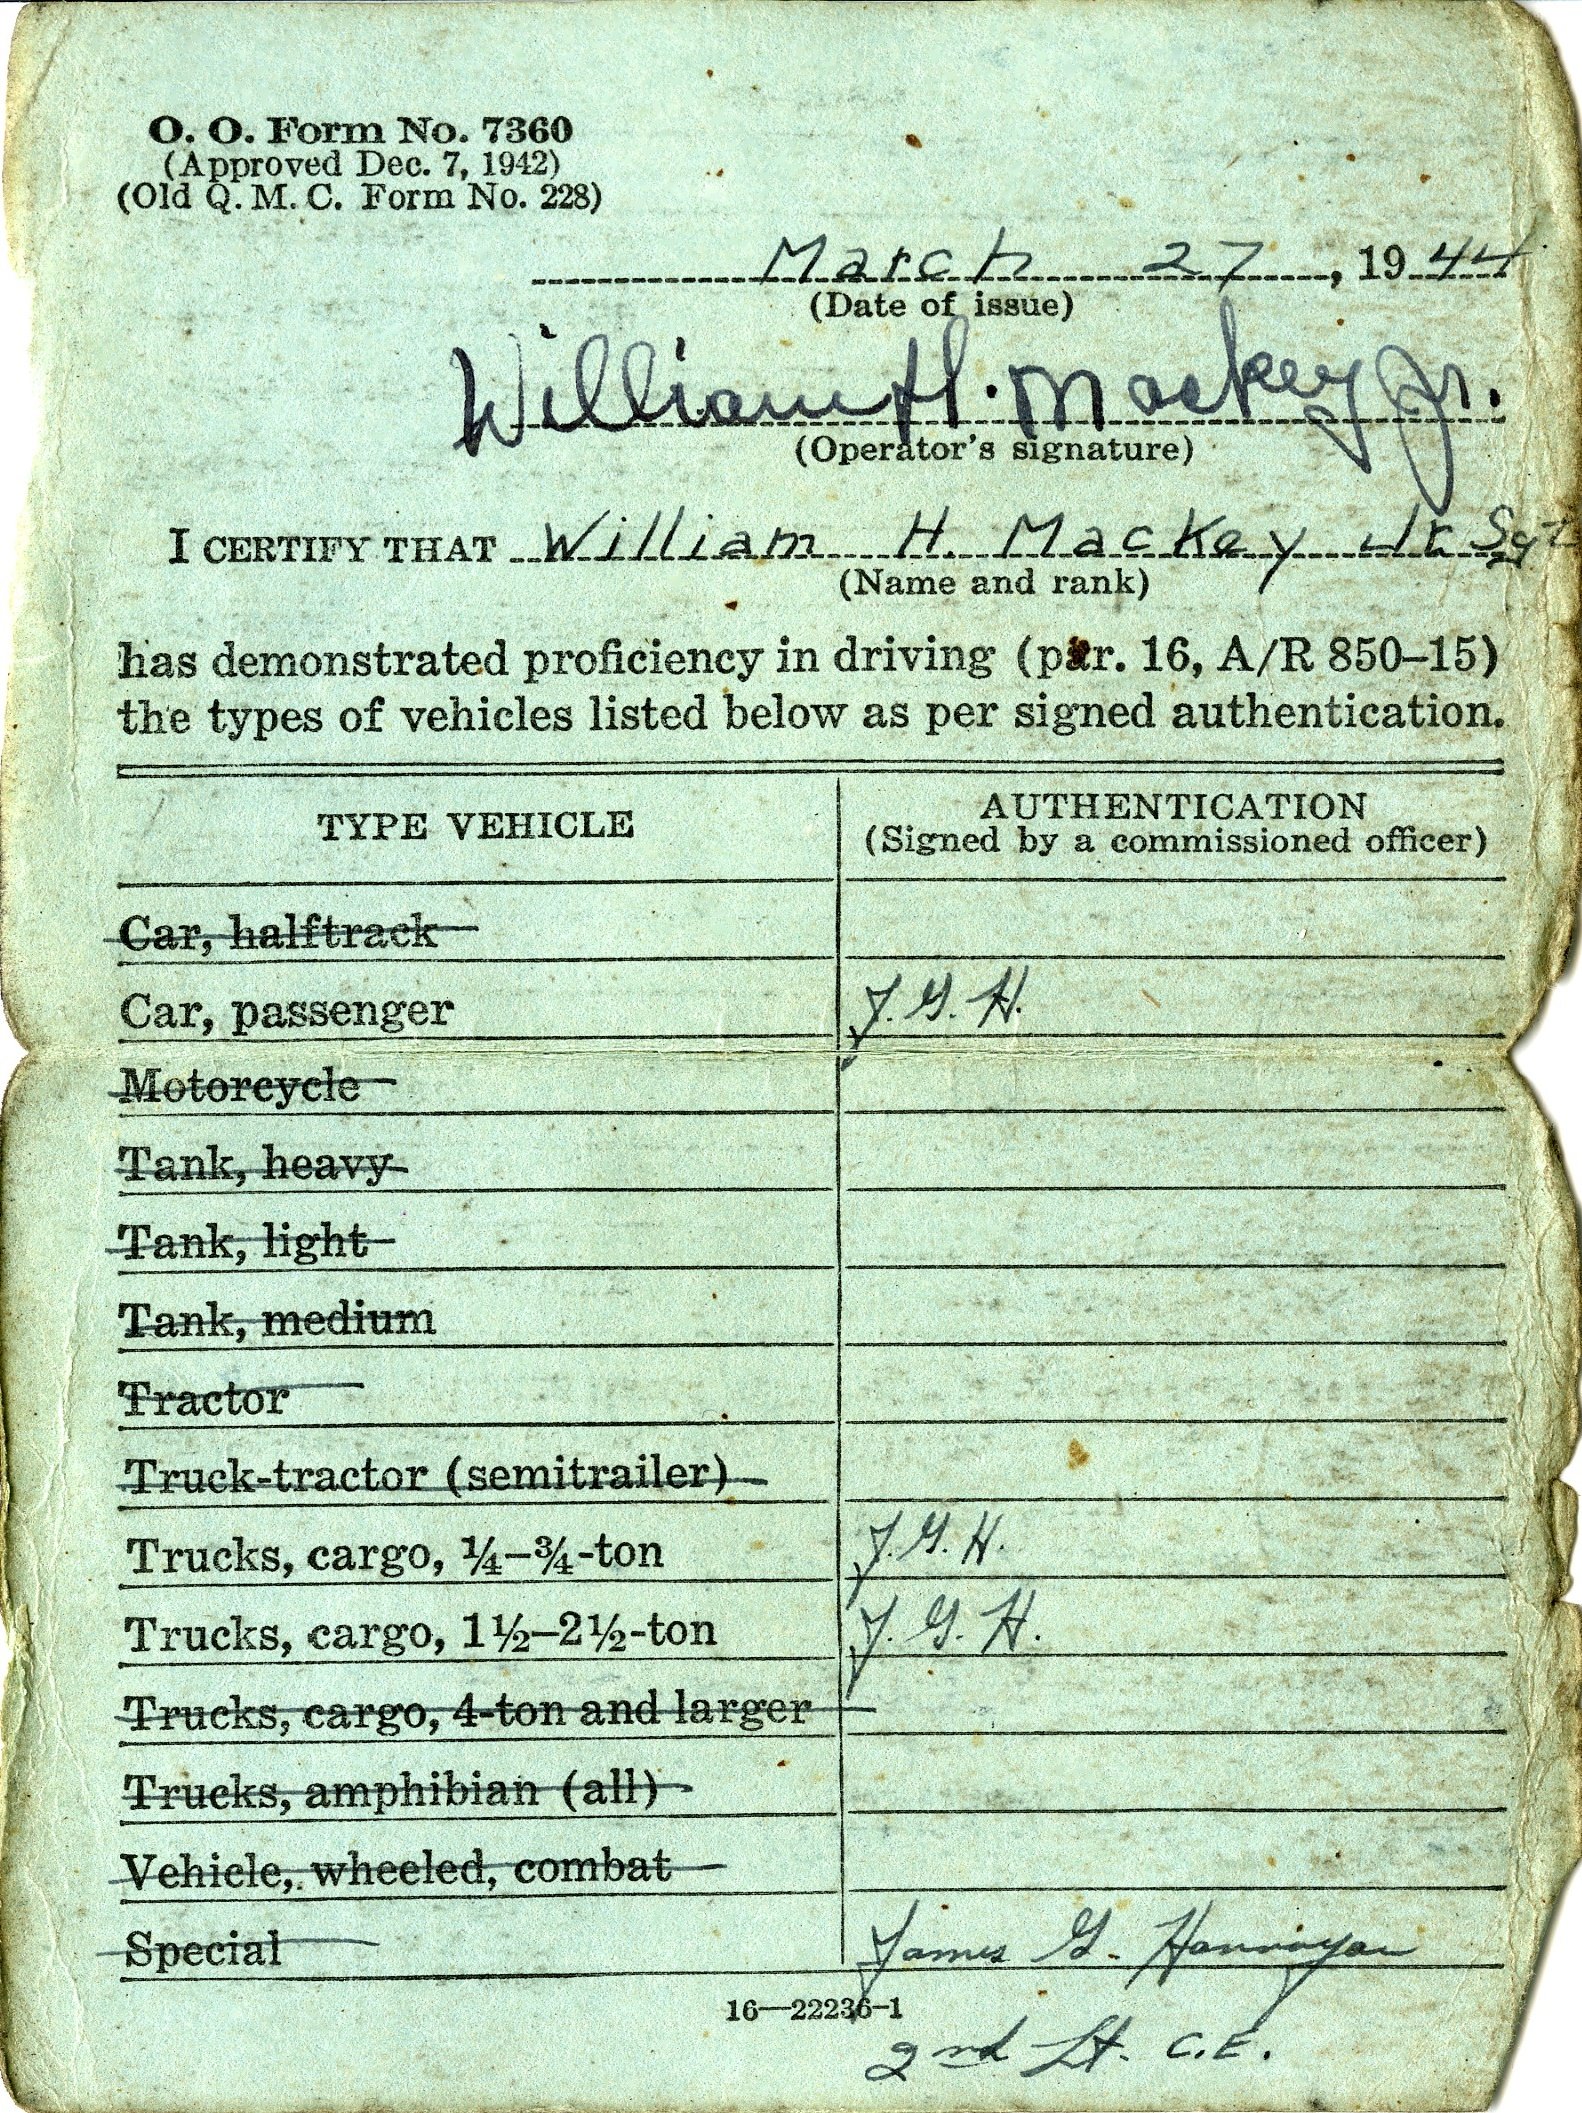 O. O. Form No. 7360
(Approved Dec. 7, 1942)
(Old Q. M. C. Form No. 228)
March 27, 1944
(Date of issue)
William H. Mackey Jr.
(Operator's signature)
I CERTIFY THAT William H. Mackey Jr. Sgt
(Name and rank)
has demonstrated proficiency in driving (par. 16, A/R 850–15)
the types of vehicles listed below as per signed authentication.
TYPE VEHICLE
AUTHENTICATION
(Signed by a commissioned officer)
Car, halftrack
Car, passenger J. G. H.
Motorcycle
Tank, heavy
Tank, light
Tank, medium
Tractor
Truck-tractor (semitrailer)
Trucks, cargo, ¼–¾-ton J. G. H.
Trucks, cargo, 1½–2½-ton J. G. H.
Trucks, cargo, 4-ton and larger
Trucks, amphibian (all)
Vehicle, wheeled, combat
Special James G.
16—22236-1
2nd Lt. C.E.